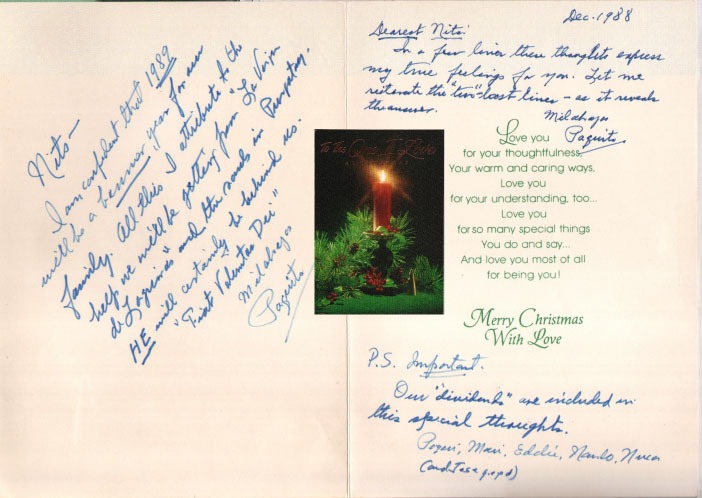 Nits—
I am confident that 1989
will be a banner year for our
family. All this I attribute to the
help we will be getting from "La Virgen
de Lagrimas" and the souls in Purgatory.
HE will certainly be behind us.
"Fiat Voluntas Dei"
Milabajos
Paquito
Dec. 1988
Dearest Nits:
In a few lines these thoughts express
my true feelings for you. Let me
reiterate the "two" last lines – as it reveals
the answer.
Milabajos
Paquito
To the One I Love
Love you
for your thoughtfulness,
Your warm and caring ways,
Love you
for your understanding, too...
Love you
for so many special things
You do and say...
And love you most of all
for being you!
Merry Christmas
With Love
P.S. Important.
Our "dividends" are included in
this special thoughts.
Mari, Eddie, Nando,